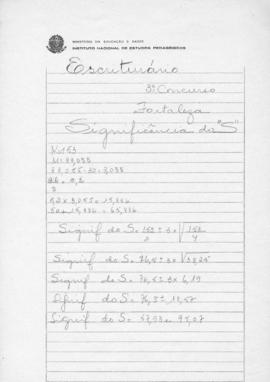 MINISTÉRIO DA EDUCAÇÃO E SAÚDE
INSTITUTO NACIONAL DE ESTUDOS PEDAGÓGICOS
Escriturário
3º Concurso
Fortaleza
Significância do "S"
N=153
Signif do S= 153 ± 3 √153
2 4
Signif do S= 76,5 ± 3 √38,25
Signif do S= 76,5 ± 3 x 6,19
Signif do S= 76,5 ± 18,57
Signif do S= 57,93 e 95,07